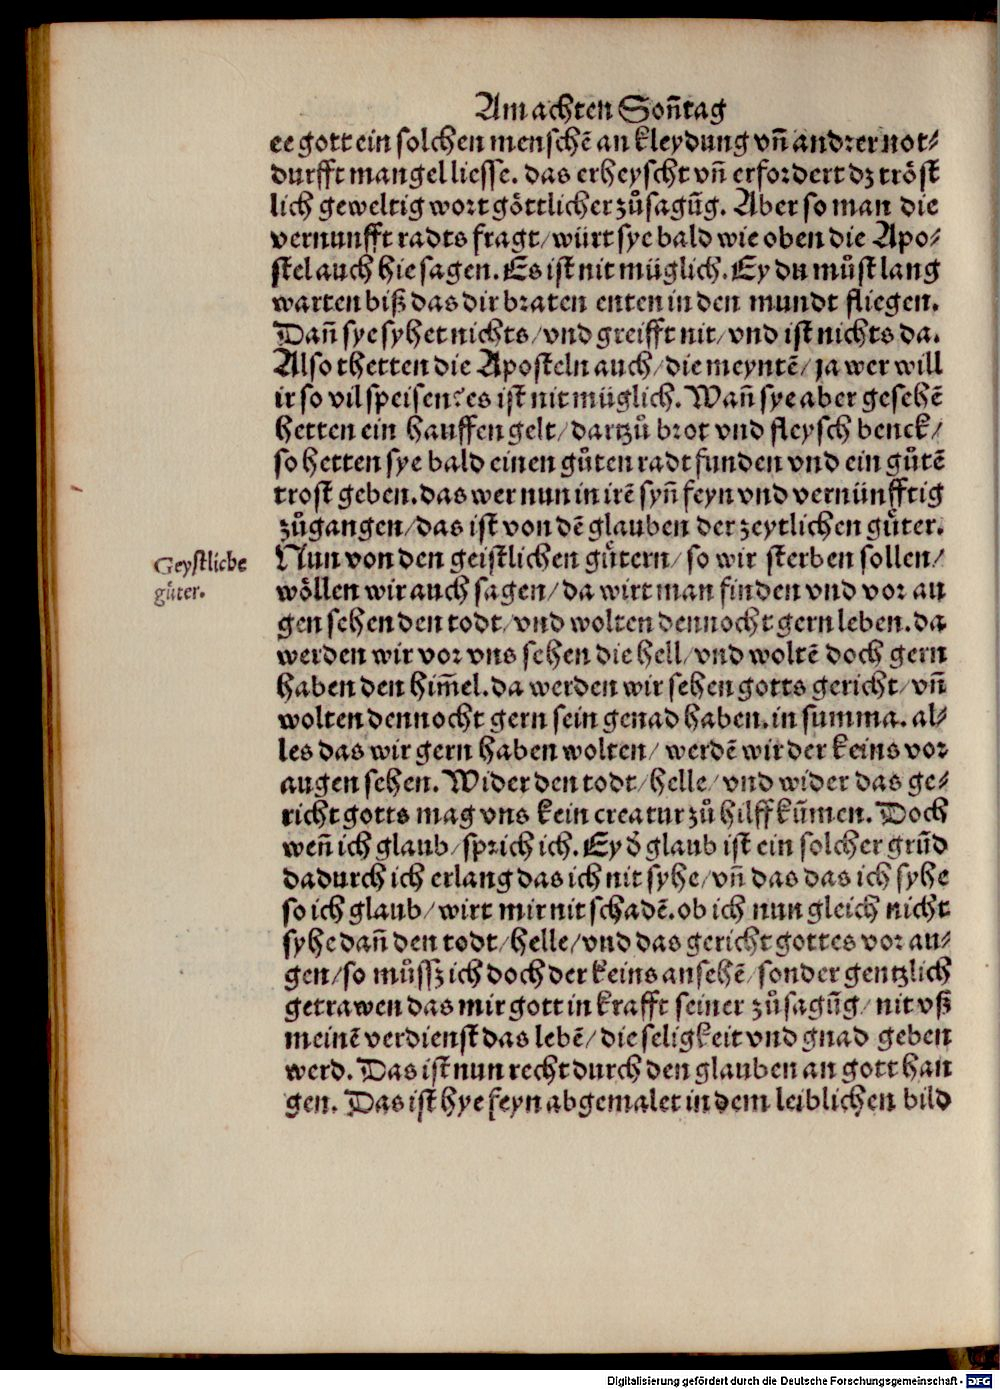 Am achten Soñtag
ee gott ein solchen menschē an kleydung vñ andrer not⸗
durfft mangel liesse. das erheyscht vñ erfordert dz tröst
lich geweltig wort göttlicher zůsagūg. Aber so man die
vernunfft radts fragt/ würt sye bald wie oben die Apo⸗
stel auch hie sagen. Es ist nit müglich. Ey du můst lang
warten biß das dir braten enten in den mundt fliegen.
Dañ sye syhet nichts/ vnd greifft nit/ vnd ist nichts da.
Also thetten die Aposteln auch/ die meyntē/ ja wer will
ir so vil speisen? es ist nit müglich. Wañ sye aber gesehē
hetten ein hauffen gelt/ dartzů brot vnd fleysch benck/
so hetten sye bald einen gůten radt funden vnd ein gůtē
trost geben. das wer nun in irē syñ feyn vnd vernünfftig
zůgangen/ das ist von dē glauben der zeytlichen gůter.
Geystliche
gůter.
Nun von den geistlichen gůtern/ so wir sterben sollen/
wöllen wir auch sagen/ da wirt man finden vnd vor au
gen sehen den todt/ vnd wolten dennocht gern leben. da
werden wir vor vns sehen die hell/ vnd woltē doch gern
haben den him̄el. da werden wir sehen gotts gericht/ vñ
wolten dennocht gern sein genad haben. in summa. al⸗
les das wir gern haben wolten/ werdē wir der keins vor
augen sehen. Wider den todt/ helle/ vnd wider das ge⸗
richt gotts mag vns kein creatur zů hilff kūmen. Doch
weñ ich glaub/ sprich ich. Ey d̕ glaub ist ein solcher grūd
dadurch ich erlang das ich nit syhe/ vñ das das ich syhe
so ich glaub/ wirt mir nit schadē. ob ich nun gleich nicht
syhe dañ den todt/ helle/ vnd das gericht gottes vor au⸗
gen/ so můssz ich doch der keins ansehē/ sonder gentzlich
getrawen das mir gott in krafft seiner zůsagūg/ nit vß
meinē verdienst das lebē/ die seligkeit vnd gnad geben
werd. Das ist nun recht durch den glauben an gott han
gen. Das ist hye feyn abgemalet in dem leiblichen bild
Digitalisierung gefördert durch die Deutsche Forschungsgemeinschaft - DFG